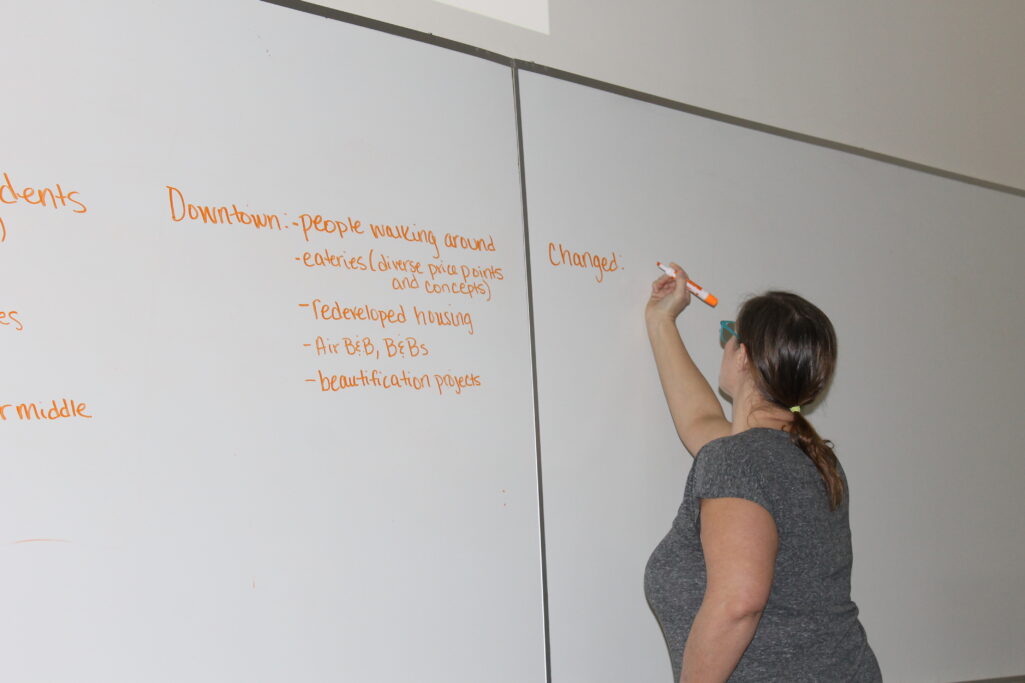 dents
)
es
r middle
Downtown: -people walking around
-eateries (diverse price points
and concepts)
-redeveloped housing
-Air B&B, B&Bs
-beautification projects
Changed: